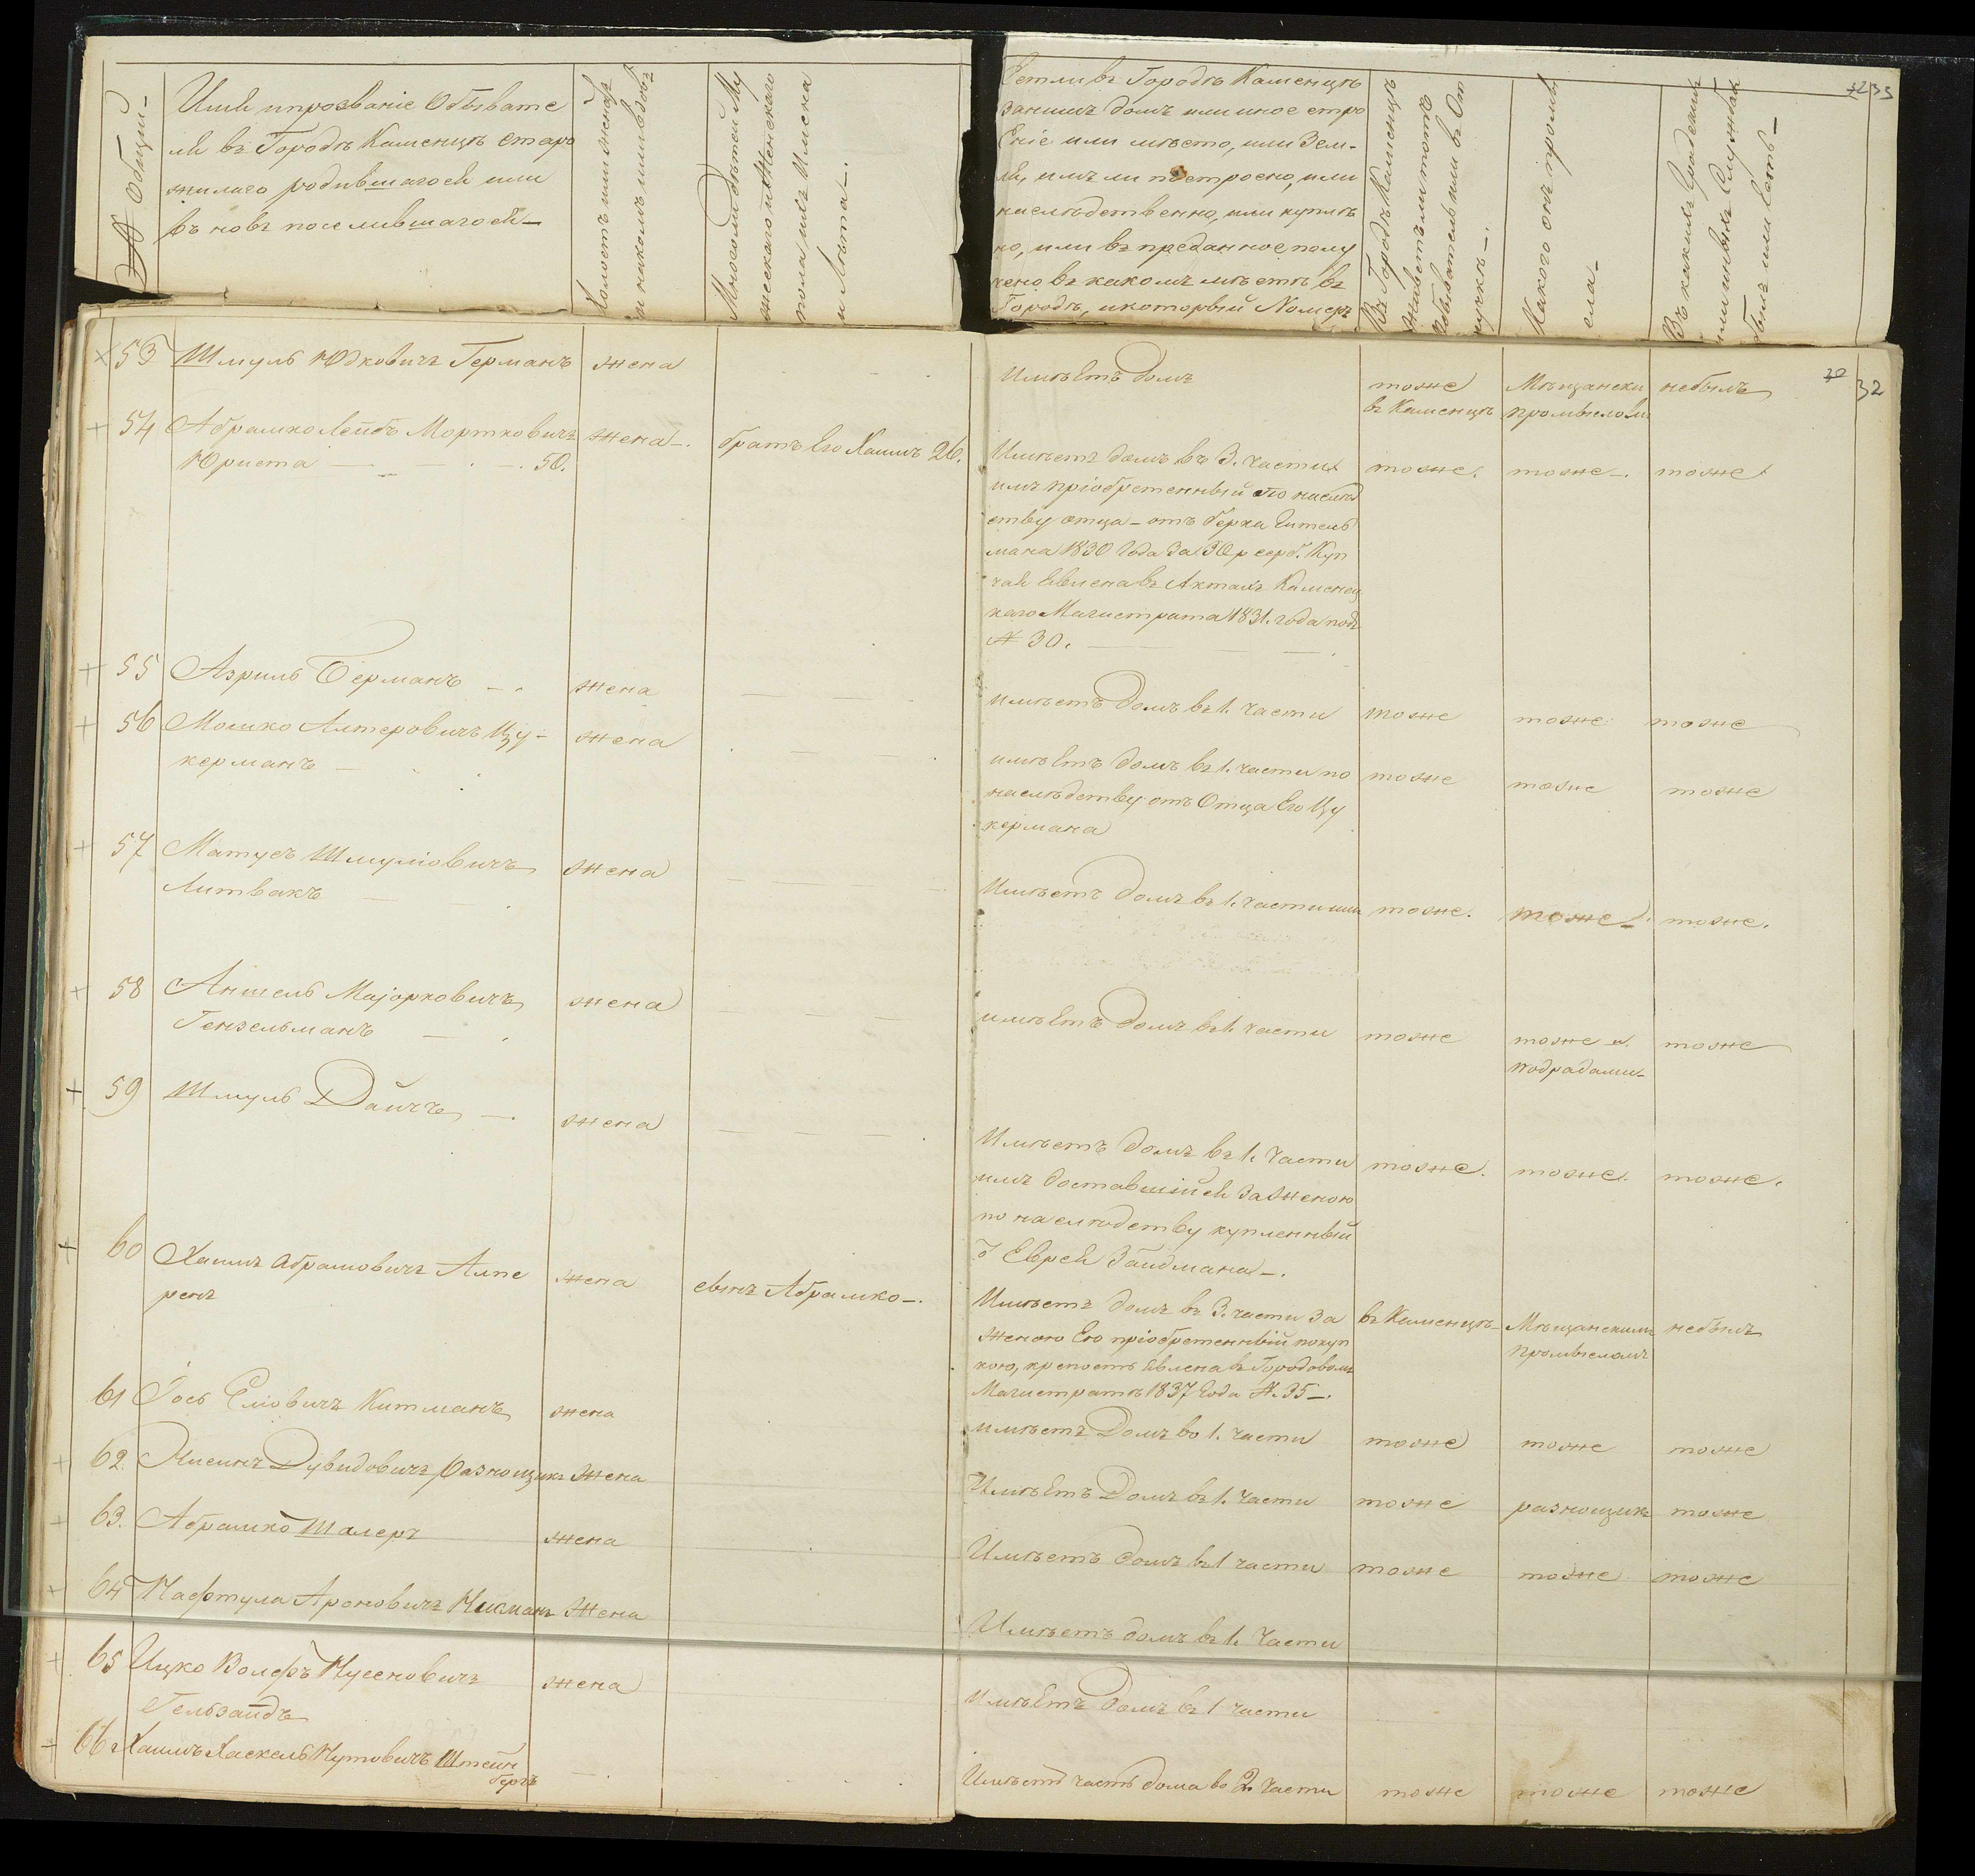 № Общий
Имя и прозваніе Обывате
ля въ Городѣ Каменцѣ старо
жилаго родившагося или
въ новъ поселившагося
Холостъ или женатъ
и на комъ или вдовъ
Много ли дѣтей Му
жескаго и Женскаго
пола, ихъ Имена
и Лѣта
Естли въ Городѣ Каменцѣ
за нимъ домъ или иное стро
Еніе или мѣсто, или Зем-
ля, имъ ли построено, или
наслѣдственно, или куплѣ
но, или въ преданное полу
чено въ какомъ мѣстѣ въ
Городѣ, и который Номеръ
Въ Городѣ Каменцѣ
живетъ ли тотъ
Обыватель или въ От
лучкѣ
Какого онъ промы
сла
Въ какихъ Градскихъ
или иныхъ Службахъ
былъ или есть
32
53 Шмуль Юдковичъ Германъ жена
Имѣетъ Домъ
тоже
въ Каменцѣ
Мѣщански
промысломъ
небылъ
54 Абрамко Лейбъ Мортковичъ
Юриста 50.
жена
братъ Его Хаимъ 26.
Имѣетъ домъ въ 3. части
имъ пріобретенный по наслѣд
ству отца – отъ Берка Гитель
мана 1830 Года За 30 р серб. Куп
чая Явлена въ Актахъ Каменец
каго Магистрата 1831. года подъ
№ 30.
тоже. тоже тоже
55 Азриль Берманъ жена
имѣетъ Домъ въ 1. части тоже тоже тоже
56 Мошко Алтеровичъ Цу-
керманъ
жена
имѣетъ домъ въ 1. части по
наслѣдству отъ Отца Его Цу
кермана
тоже тоже тоже
57 Матусъ Шмуліовичъ
Литвакъ
жена
Имѣетъ домъ въ 1. части
тоже. тоже. тоже.
58 Аншель Маіорковичъ
Гензельманъ
жена
имѣетъ Домъ въ 1. части тоже
тоже и
подрядами
тоже
59 Шмуль Дайчъ жена
Имѣетъ домъ въ 1. части
имъ доставшійся за женою
по наслѣдству купленный
Еврея Зайдмана
тоже. тоже. тоже.
60 Хаимъ Абрамовичъ Алпе
ренъ
жена
сынъ Абрамко
Имѣетъ домъ въ 3. части за
женою Его пріобретенный покуп
кою, крепость явлена въ Городовомъ
Магистратѣ 1837 Года №. 35
въ Каменцѣ
Мѣщанскимъ
промысломъ
небылъ
61 Іось Еліовичъ Китманъ жена
имѣетъ Домъ во 1. части тоже тоже тоже
62. Нисинъ Дувидовичъ разнощикъ Жена
Имѣетъ Домъ въ 1. части тоже разнощикъ тоже
63. Абрамко Шалеръ жена
Имѣетъ домъ въ 1 части тоже тоже тоже
64 Нафтула Ароновичъ Жена
Имѣетъ домъ въ 1. Части
65 Ицко Волфъ Нусеновичъ
Гельзайдъ
жена
имѣетъ Домъ въ 1 части
66 Хаимъ Хаскель Нутовичъ Штейн
бергъ
Имѣетъ часть дома во 2. Части тоже тоже тоже